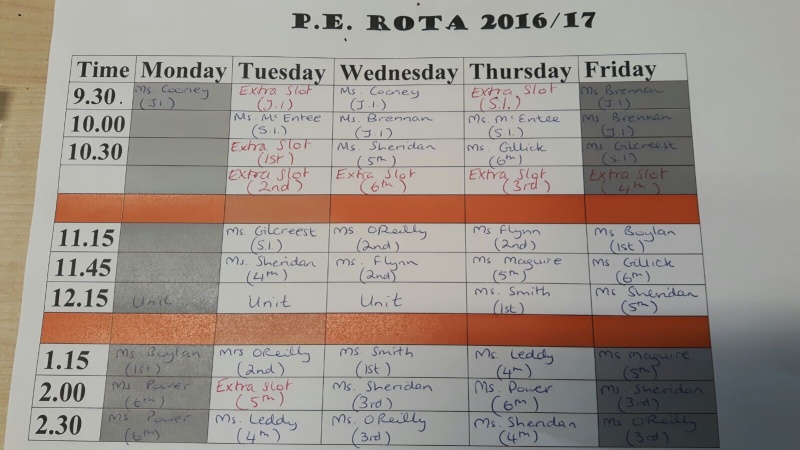 P.E. ROTA 2016/17
Time Monday Tuesday Wednesday Thursday Friday
9.30. Ms. Cooney Extra Slot Ms. Cooney Extra Slot Ms Brennan
(J.I.) (J.I) (J.I.) (S.I.) (J.I)
10.00 Ms. McEntee Ms. Brennan Ms. McEntee Ms Brennan
(S.I.) (J.I) (S.I.) (J.I)
10.30 Extra Slot Ms. Sheridan Ms. Gillick Ms Gilcreest
(1st) (5th) (6th) (S.I)
Extra Slot Extra Slot Extra Slot Extra Slot
(2nd) (6th) (3rd) (4th)
11.15 Ms. Gilcreest Ms. OReilly Ms Flynn Ms Boylan
(S.I.) (2nd) (2nd) (1st)
11.45 Ms. Sheridan Ms. Flynn Ms Maguire Ms. Gillick
(4th) (2nd) (5th) (6th)
12.15 Unit Unit Unit Ms. Smith Ms Sheridan
(1st) (5th)
1.15 Ms Boylan Mrs OReilly Ms Smith Ms. Leddy Ms Maguire
(1st) (2nd) (1st) (4th) (5th)
2.00 Ms. Power Extra Slot Ms. Sheridan Ms. Power Ms. Sheridan
(6th) (5th) (3rd) (6th) (3rd)
2.30 Ms Power Ms. Leddy Ms. OReilly Ms. Sheridan Ms OReilly
(6th) (4th) (3rd) (4th) (3rd)